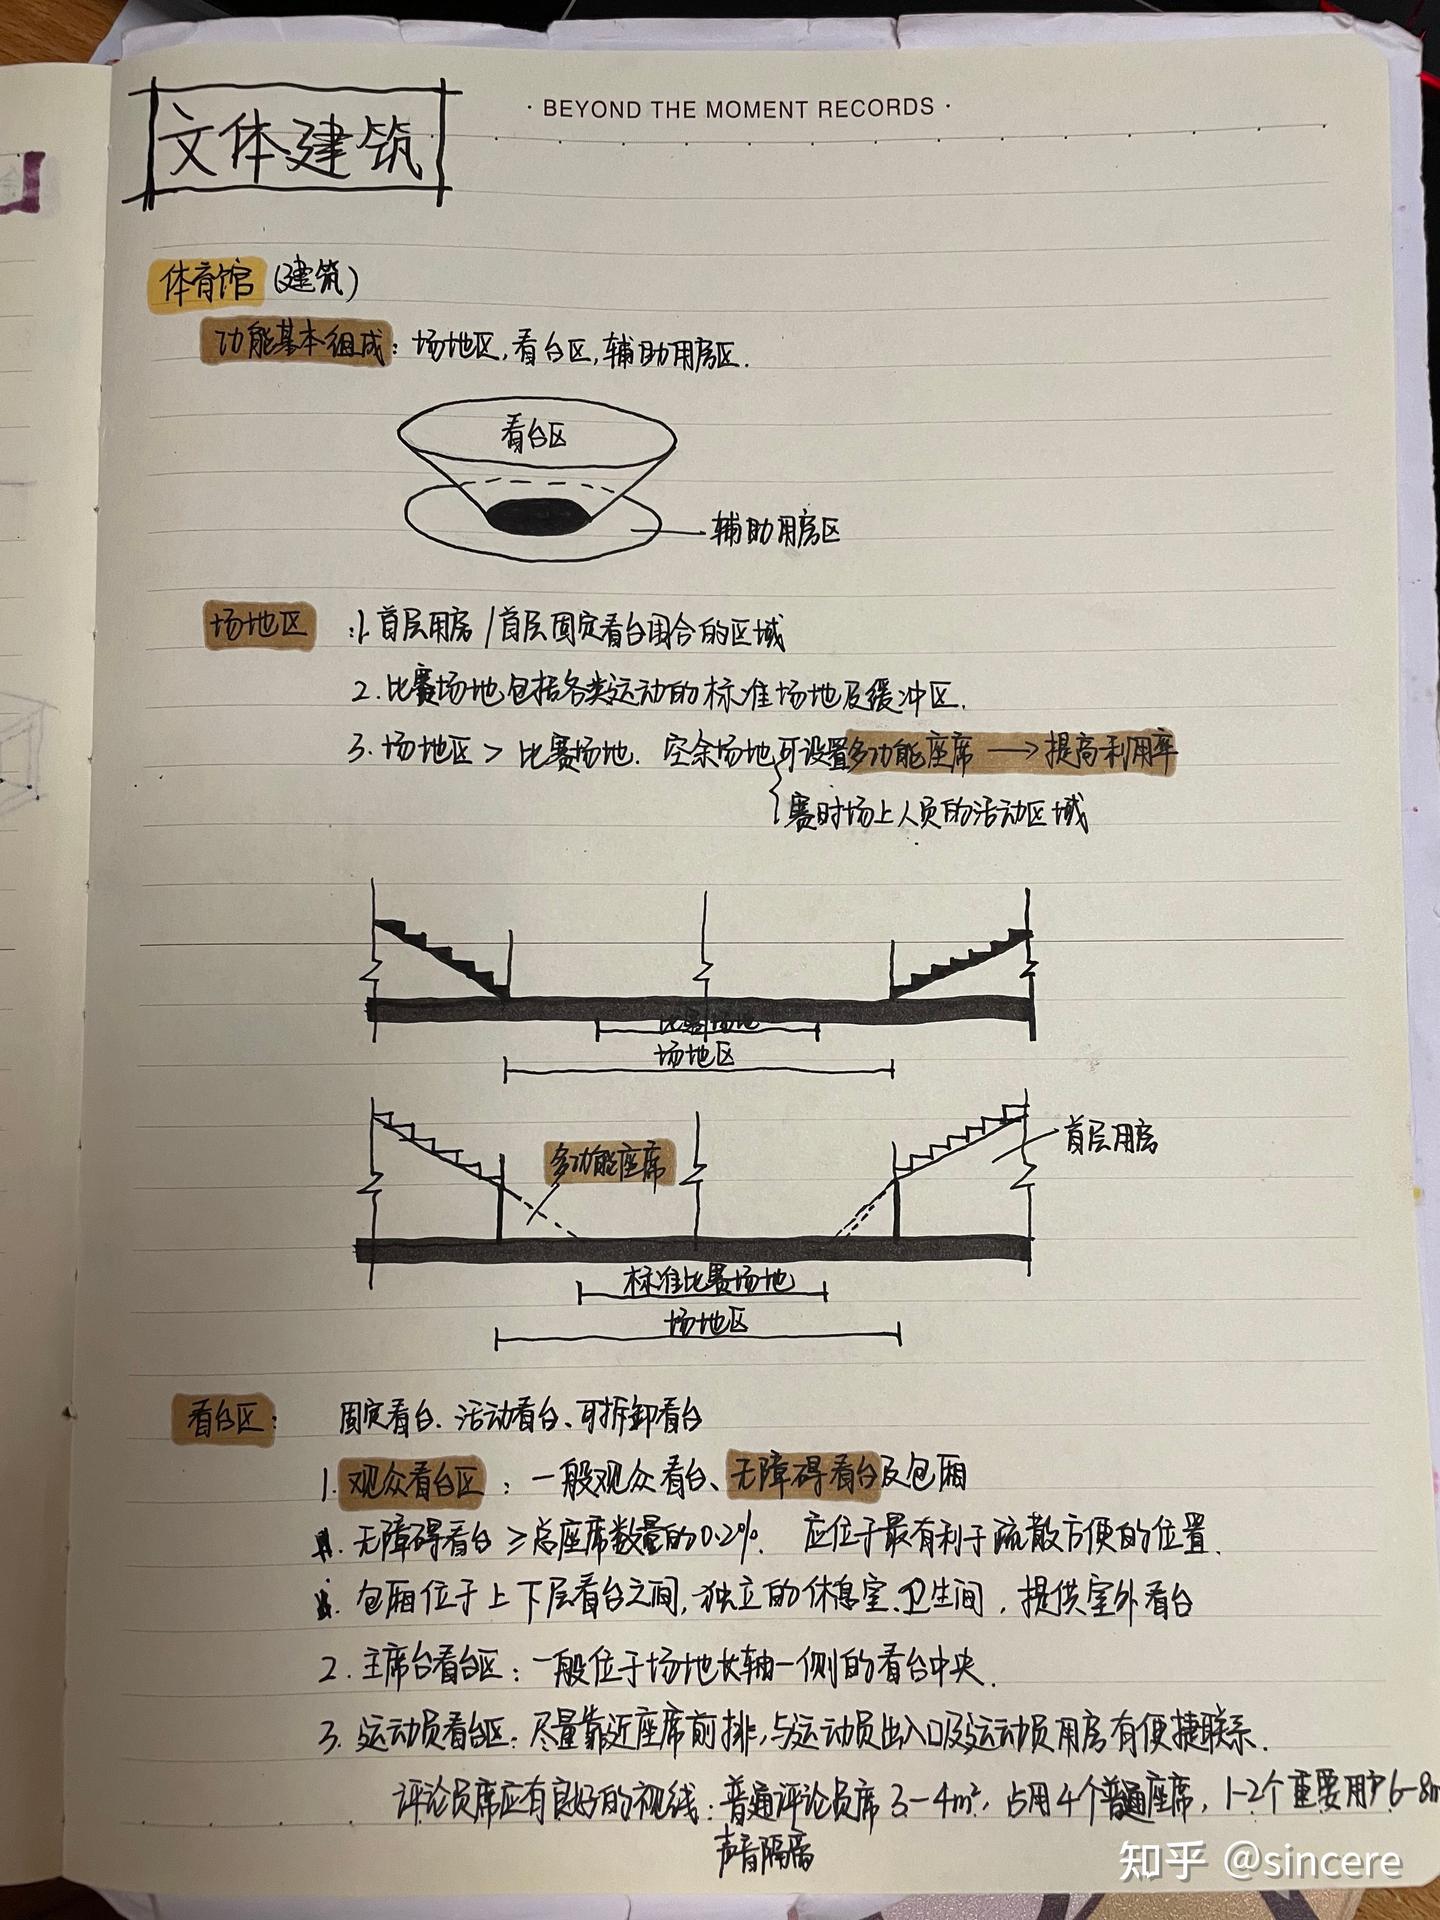 文体建筑
· BEYOND THE MOMENT RECORDS ·
体育馆(建筑)
功能基本组成：场地区,看台区,辅助用房区.
看台区
辅助用房区
场地区：1.首层用房/首层固定看台围合的区域
2.比赛场地包括各类运动的标准场地及缓冲区.
3.场地区>比赛场地. 空余场地可设置多功能座席→提高利用率
赛时场上人员的活动区域
比赛场地
场地区
多功能座席
首层用房
标准比赛场地
场地区
看台区：固定看台、活动看台、可拆卸看台
1.观众看台区：一般观众看台、无障碍看台及包厢
无障碍看台≥总座席数量的0.2%. 应位于最有利于疏散方便的位置.
包厢位于上下层看台之间,独立的休息室、卫生间,提供室外看台
2.主席台看台区：一般位于场地长轴一侧的看台中央.
3.运动员看台区：尽量靠近座席前排,与运动员出入口及运动员用房有便捷联系.
评论员席应有良好的视线：普通评论员席3-4m²,占用4个普通座席,1-2个重要用户6-8m
声音隔离
知乎 @sincere